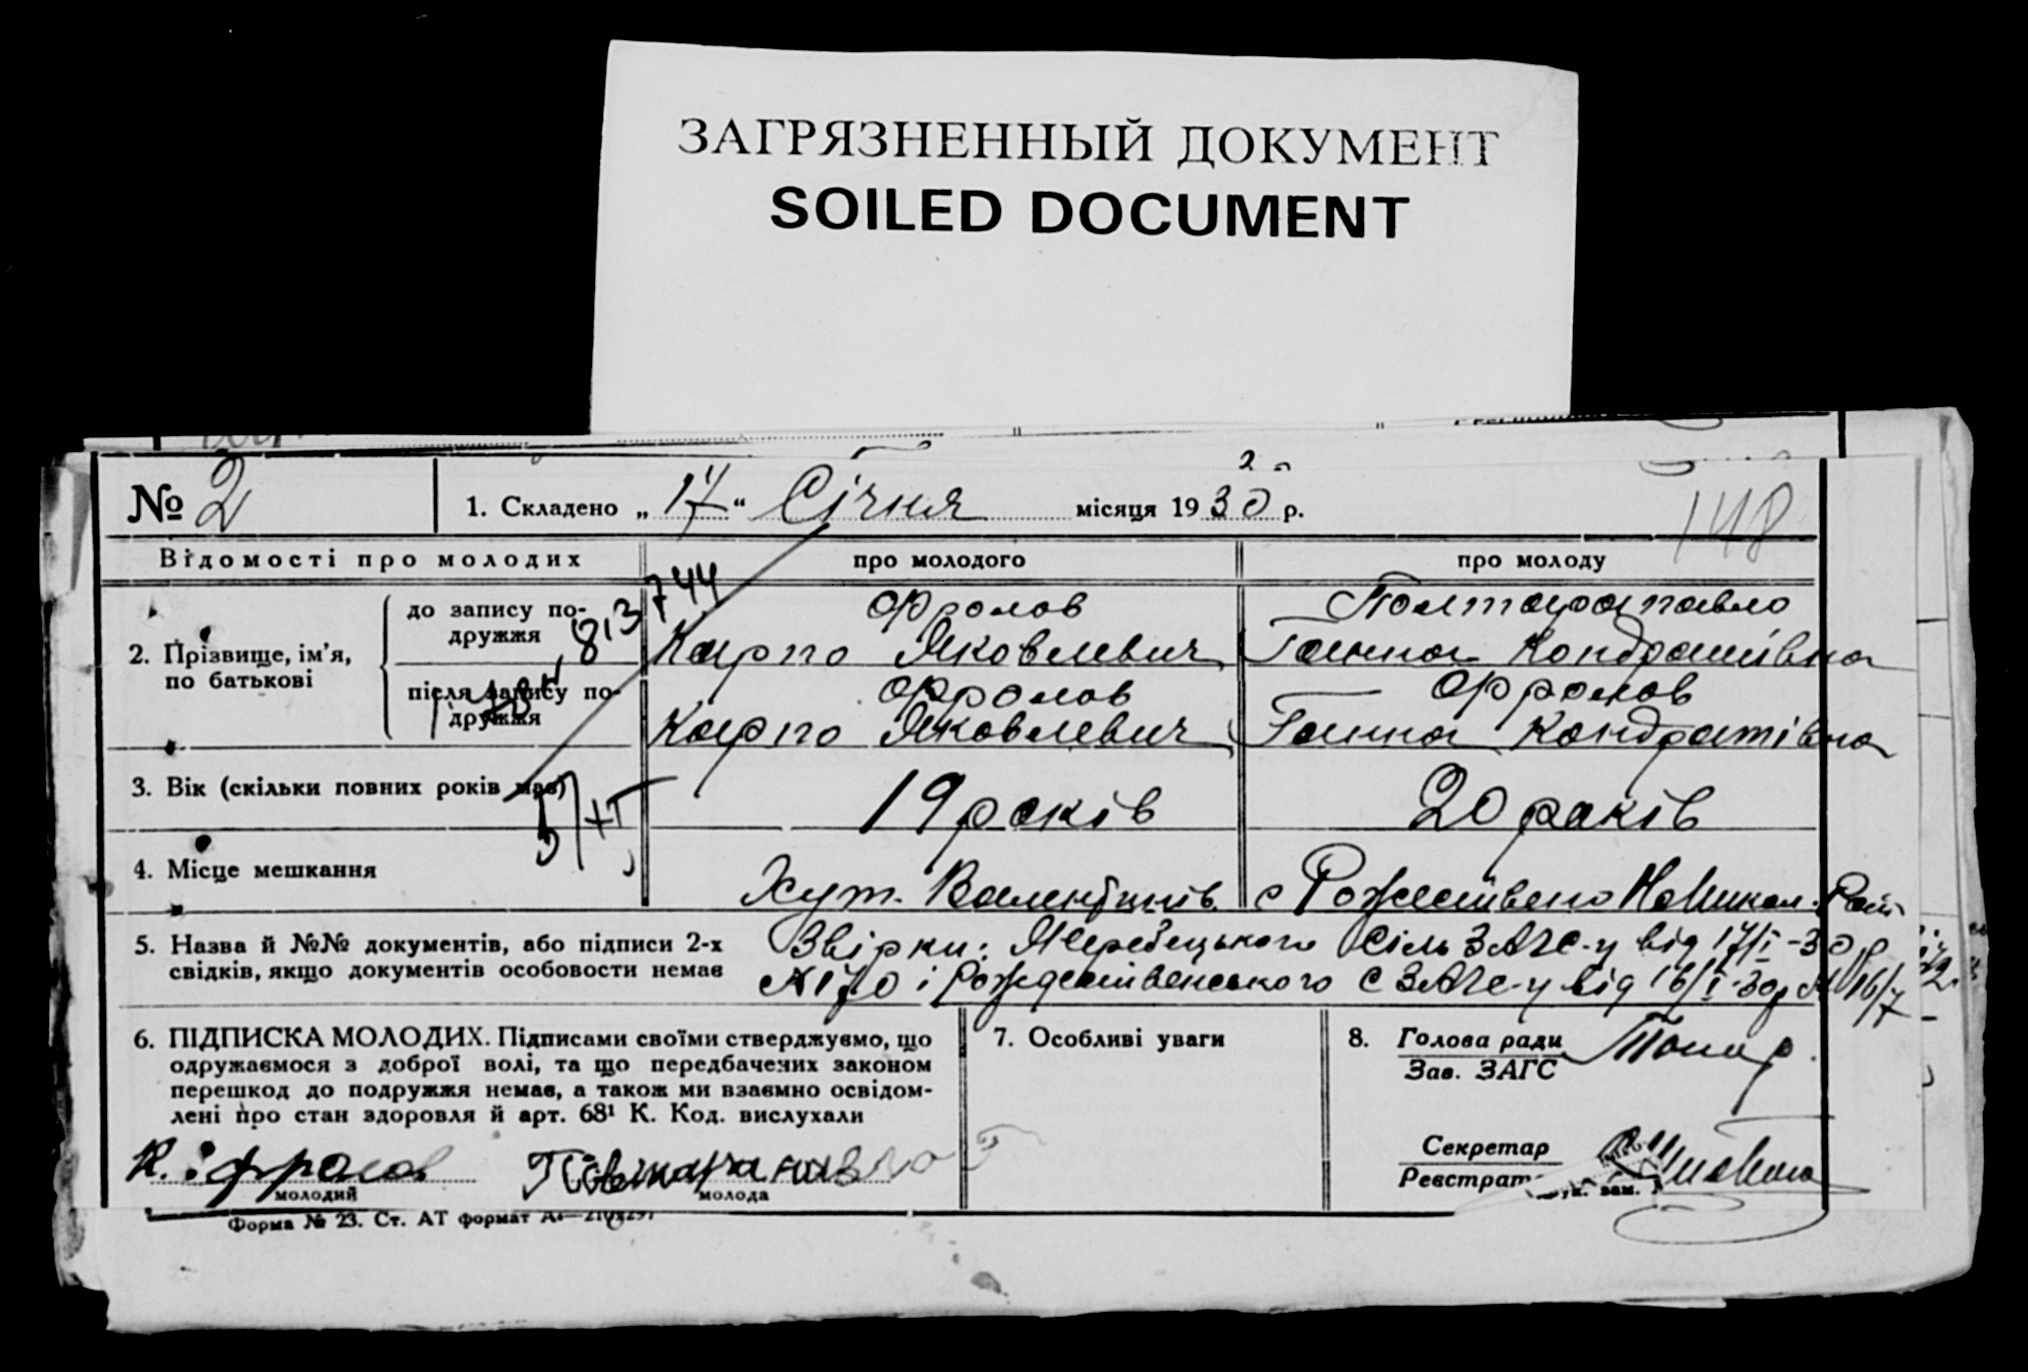 ЗАГРЯЗНЕННЫЙ ДОКУМЕНТ
SOILED DOCUMENT
№ 2
1. Складено „17“ Січня місяця 1930 р.
148
Відомості про молодих
про молодого
про молоду
2. Прізвище, ім’я, по батькові
до запису по-
дружжя
Фролов
Карпо Яковлевич
Полтарапавло
Ганна Кондратівна
після запису по-
дружжя
Фролов
Карпо Яковлевич
Фролов
Ганна Кондратівна
813744
3. Вік (скільки повних років має)
19 років
20 років
5/XI
4. Місце мешкання
Хут.
с Рождествено
5. Назва й №№ документів, або підписи 2-х
свідків, якщо документів особовости немає
Звірки: Жеребецького Сіль ЗАГС-у від 17/I-30 р
№ 170 і Рождественського С ЗАГС-у від 16/I-30р № 16/7
6. ПІДПИСКА МОЛОДИХ. Підписами своїми стверджуємо, що
одружаємося з доброї волі, та що передбачених законом
перешкод до подружжя немає, а також ми взаємно освідом-
лені про стан здоровля й арт. 68¹ К. Код. вислухали
К. Фролов
молодий
Полтарапавло Г
молода
7. Особливі уваги
8. Голова ради
Зав. ЗАГС
Секретар
Реєстрат
Форма № 23. Ст. АТ формат